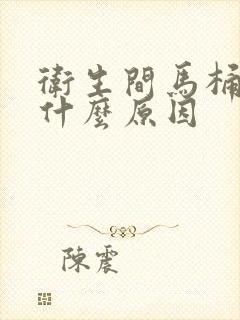 衛生間馬桶
什麼原因
陳震